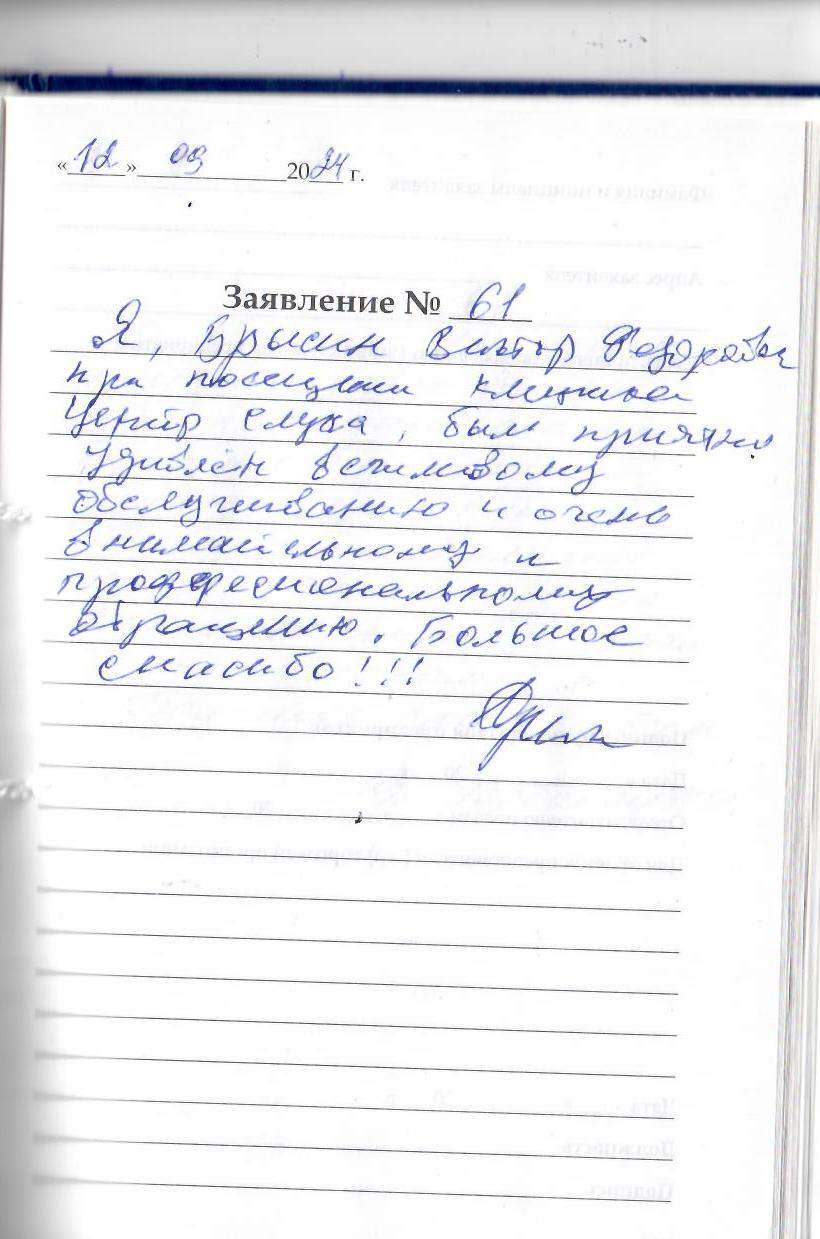 «12» 09 2024 г.
Заявление № 61
Я, Брысин Виктор
при посещении клиники
Центр слуха, был приятно
удивлён вежливому
обслуживанию и очень
внимательному и
профессиональному
обращению. Большое
спасибо!!!